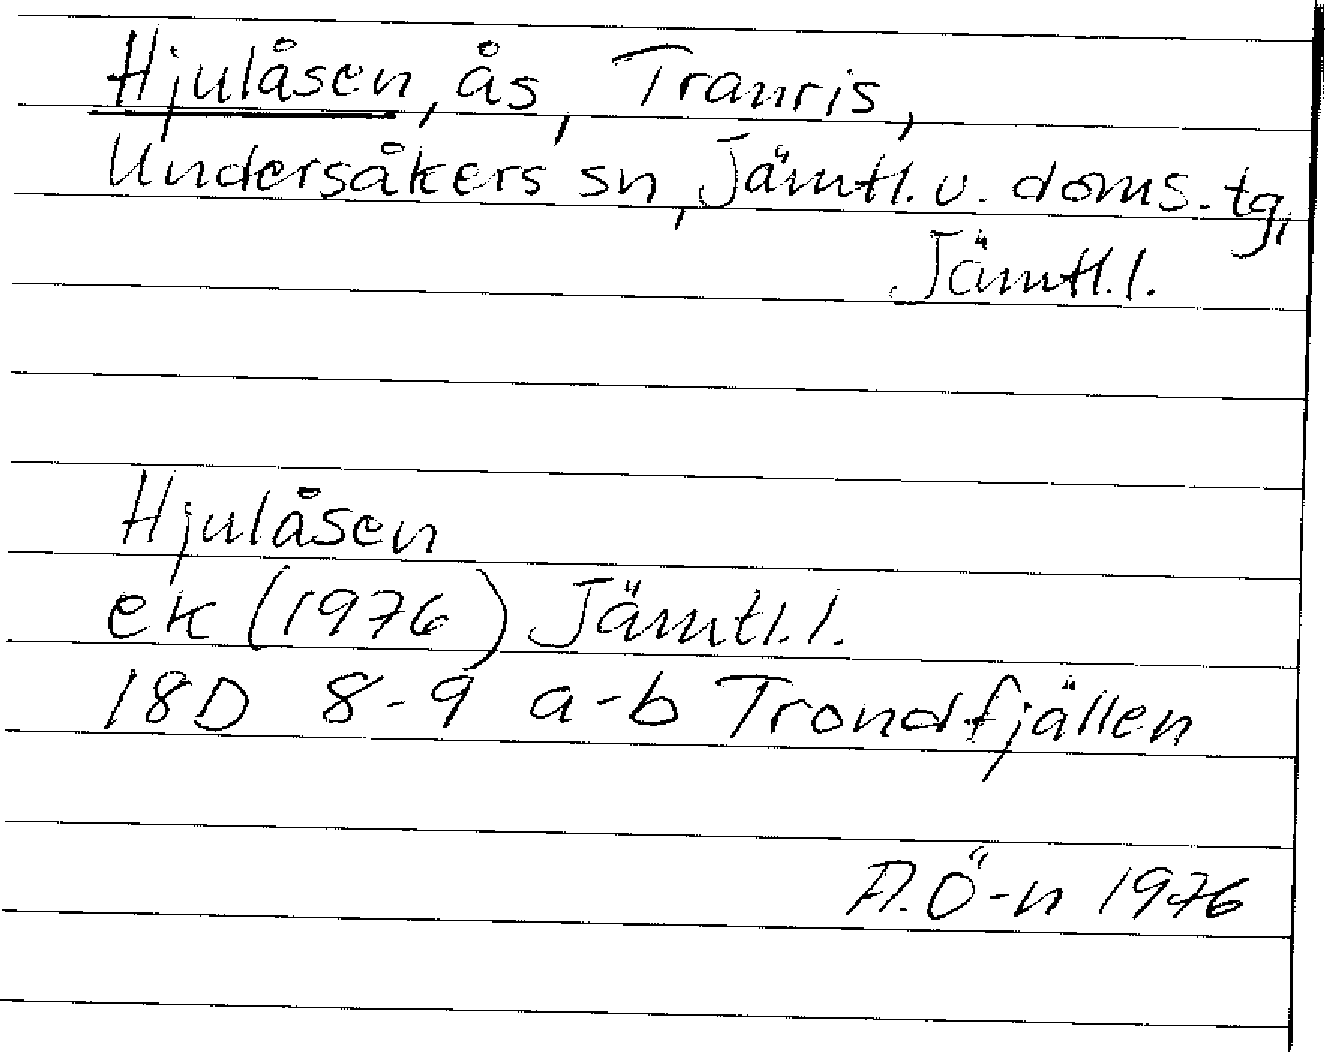 Hjulåsen, ås, Tranris,
Undersåkers sn, Jämtl. v. doms. tg,
Jämtl. l.
Hjulåsen
ek (1976) Jämtl. l.
18D 8-9 a-b Trondfjällen
A. Ö-n 1976